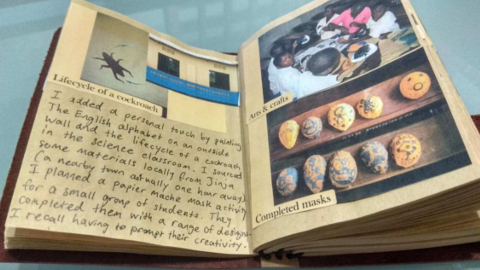 Lifecycle of a cockroach
I added a personal touch by painting
The English alphabet on an outside
Wall and the lifecycle of a cockroach
in the Science classroom. I sourced
some materials locally from Jinja
(a nearby town actually one hour away)
I planned a papier mache mask activity
for a small group of students. They
completed them with a range of designs
I recall having to prompt their creativity.
Arts & crafts
Completed masks